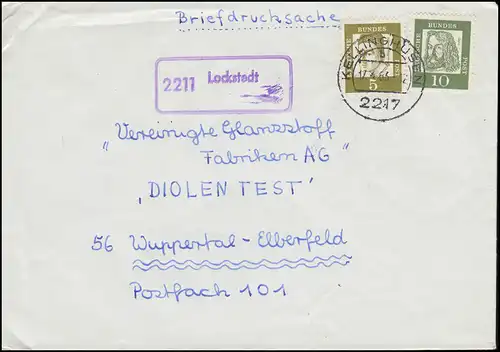 Briefdrucksache
2211 Lockstedt
KELLINGHUSEN
2217
DEUTSCHE BUNDESPOST
5
DEUTSCHE BUNDESPOST
10
„Vereinigte Glanzstoff
Fabriken AG"
‚DIOLEN TEST'
56 Wuppertal-Elberfeld
Postfach 101